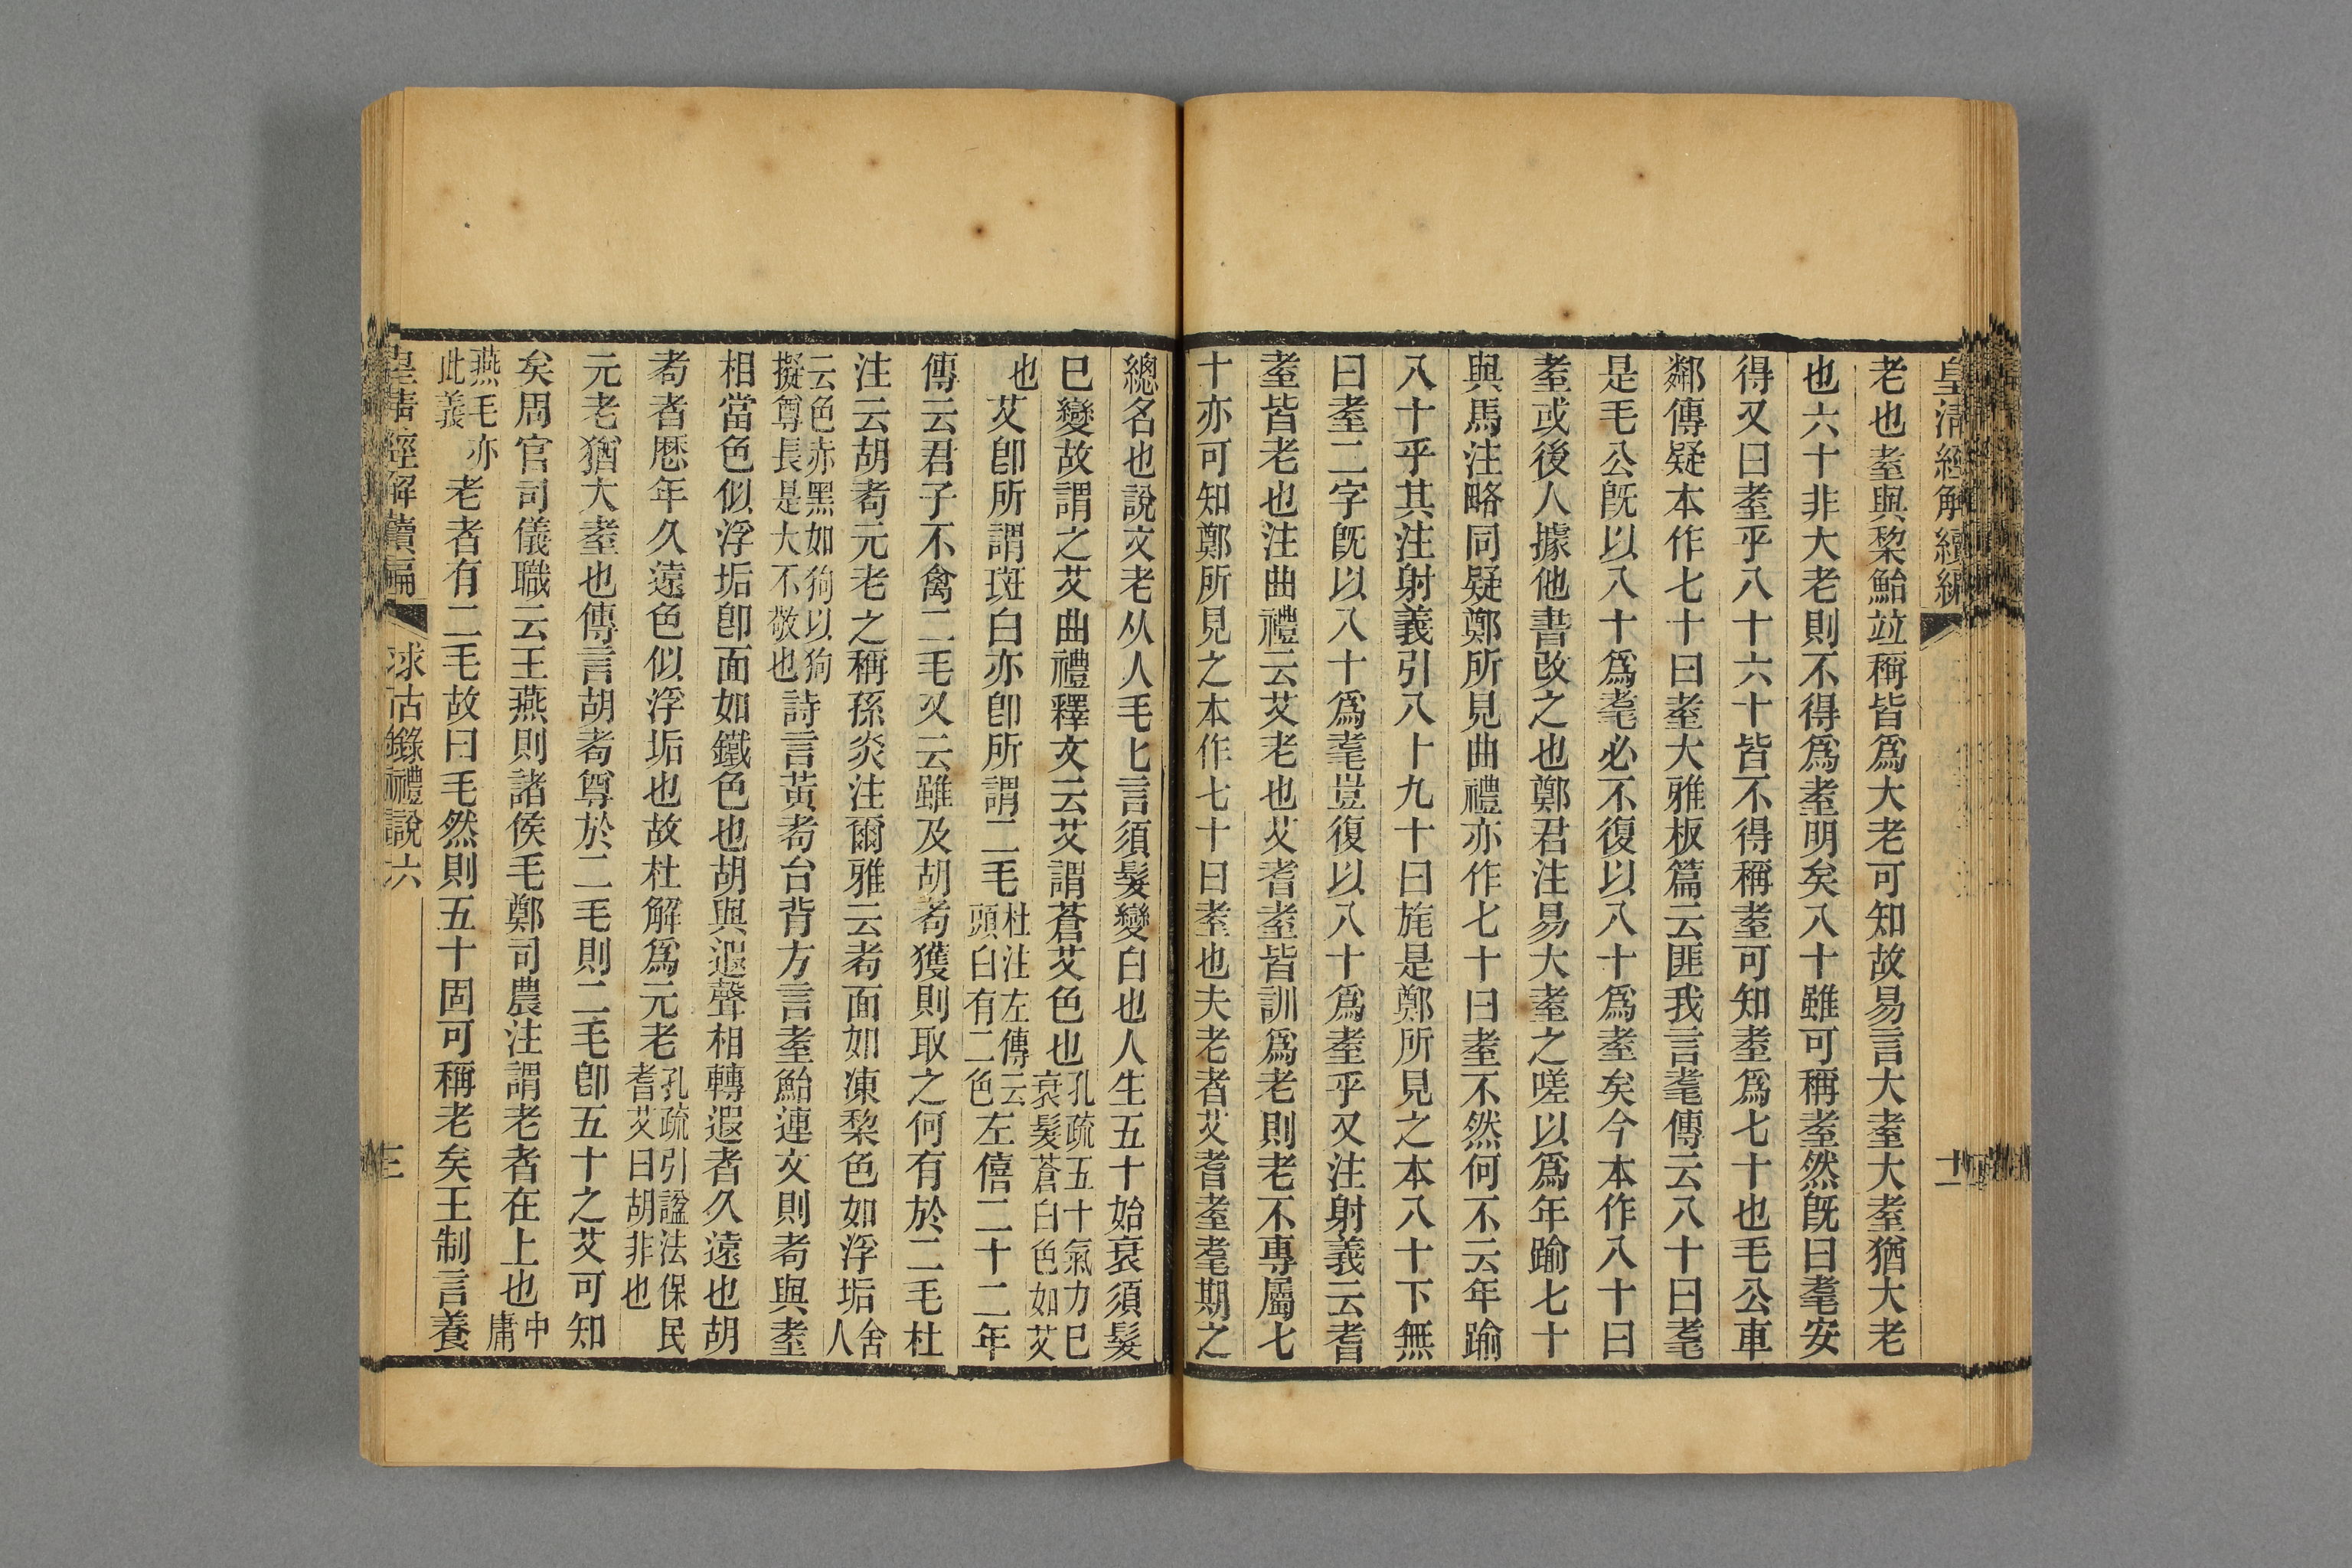 皇清經解續編
老也耊與棃鮐竝稱皆爲大老可知故易言大耊大耊猶大老
也六十非大老則不得爲耊明矣八十雖可稱耊然旣曰耄安
得又曰耊乎八十六十皆不得稱耊可知耊爲七十也毛公車
鄰傳疑本作七十曰耊大雅板篇云匪我言耄傳云八十曰耄
是毛公旣以八十爲耄必不復以八十爲耊矣今本作八十曰
耊或後人據他書改之也鄭君注易大耊之嗟以爲年踰七十
與馬注略同疑鄭所見曲禮亦作七十曰耊不然何不云年踰
八十乎其注射義引八十九十曰旄是鄭所見之本八十下無
曰耊二字旣以八十爲耄豈復以八十爲耊乎又注射義云耆
耊皆老也注曲禮云艾老也艾耆耊皆訓爲老則老不專屬七
十亦可知鄭所見之本作七十曰耊也夫老者艾耆耊耄期之
總名也說文老从人毛匕言須髮變白也人生五十始衰須髮
巳變故謂之艾曲禮釋文云艾謂蒼艾色也孔疏五十氣力巳衰髮蒼白色如艾
也艾卽所謂斑白亦卽所謂二毛杜注左傳云頭白有二色左僖二十二年
傳云君子不禽二毛又云雖及胡耇獲則取之何有於二毛杜
注云胡耇元老之稱孫炎注爾雅云耇面如凍棃色如浮垢舍人
云色赤黑如狗以狗擬尊長是大不敬也詩言黃耇台背方言耊鮐連文則耇與耊
相當色似浮垢卽面如鐵色也胡與遐聲相轉遐者久遠也胡
耇者歷年久遠色似浮垢也故杜解爲元老孔疏引諡法保民耆艾曰胡非也
元老猶大耊也傳言胡耇尊於二毛則二毛卽五十之艾可知
矣周官司儀職云王燕則諸侯毛鄭司農注謂老者在上也中庸
燕毛亦此義老者有二毛故曰毛然則五十固可稱老矣王制言養
皇清經解續編
求古錄禮說六